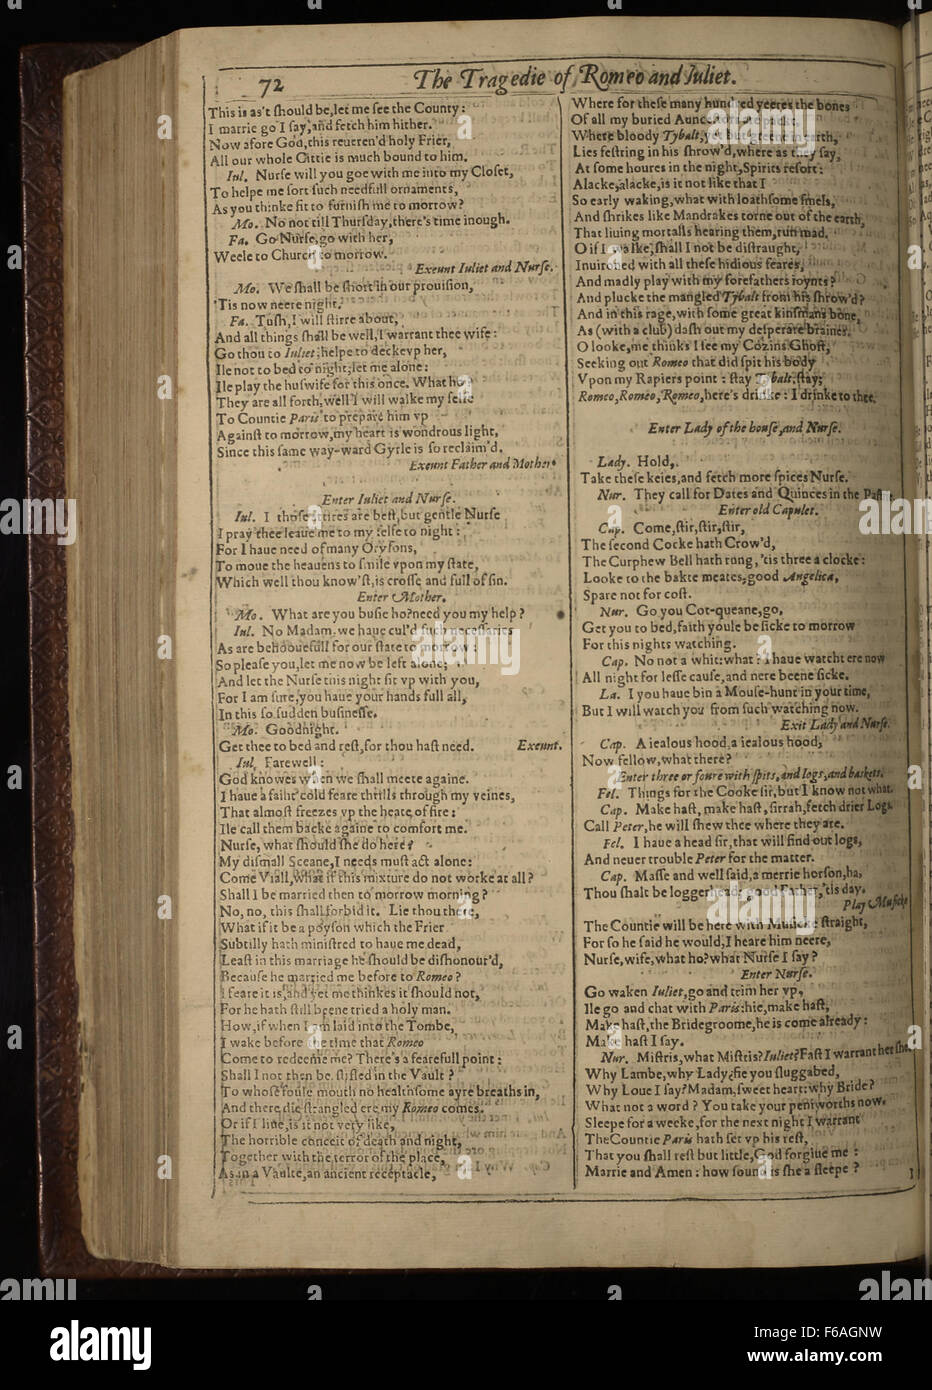 72
The Tragedie of Romeo and Iuliet.
This is as't ſhould be, let me ſee the County:
I marrie go I ſay, and fetch him hither.
Now afore God, this reueren'd holy Frier,
All our whole Cittie is much bound to him.
Iul. Nurſe will you goe with me into my Cloſet,
To helpe me ſort ſuch needfull ornaments,
As you thinke fit to furniſh me to morrow?
Mo. No not till Thurſday, there's time inough.
Fa. Go Nurſe, go with her,
Weele to Church to morrow.
Exeunt Iuliet and Nurſe.
Mo. We ſhall be ſhort in our prouiſion,
'Tis now neere night.
Fa. Tuſh, I will ſtirre about,
And all things ſhall be well, I warrant thee wife:
Go thou to Iuliet, helpe to decke vp her,
Ile not to bed to night, let me alone:
Ile play the huſwife for this once. What ho?
They are all forth, well I will walke my ſelfe
To Countie Paris to prepare him vp
Againſt to morrow, my heart is wondrous light,
Since this ſame way-ward Gyrle is ſo reclaim'd.
Exeunt Father and Mother
Enter Iuliet and Nurſe.
Iul. I thoſe attires are beſt, but gentle Nurſe
I pray thee leaue me to my ſelfe to night:
For I haue need of many Oryſons,
To moue the heauens to ſmile vpon my ſtate,
Which well thou know'ſt, is croſſe and full of ſin.
Enter Mother.
Mo. What are you buſie ho? need you my help?
Iul. No Madam, we haue cul'd ſuch neceſſaries
As are behoouefull for our ſtate to morrow:
So pleaſe you, let me now be left alone;
And let the Nurſe this night ſit vp with you,
For I am ſure, you haue your hands full all,
In this ſo ſudden buſineſſe.
Mo. Goodnight.
Get thee to bed and reſt, for thou haſt need. Exeunt.
Iul. Farewell:
God knowes when we ſhall meete againe.
I haue a faint cold feare thrills through my veines,
That almoſt freezes vp the heate of fire:
Ile call them backe againe to comfort me.
Nurſe, what ſhould ſhe do here?
My diſmall Sceane, I needs muſt act alone:
Come Viall, what if this mixture do not worke at all?
Shall I be married then to morrow morning?
No, no, this ſhall forbid it. Lie thou there,
What if it be a poyſon which the Frier
Subtilly hath miniſtred to haue me dead,
Leaſt in this marriage he ſhould be diſhonour'd,
Becauſe he married me before to Romeo?
I feare it is, and yet me thinkes it ſhould not,
For he hath ſtill beene tried a holy man.
How, if when I am laid into the Tombe,
I wake before the time that Romeo
Come to redeeme me? There's a fearefull point:
Shall I not then be ſtifled in the Vault?
To whoſe foule mouth no healthſome ayre breaths in,
And there die ſtrangled ere my Romeo comes.
Or if I liue, is it not very like,
The horrible conceit of death and night,
Together with the terror of the place,
As in a Vaulte, an ancient receptacle,
Where for theſe many hundred yeeres the bones
Of all my buried Aunceſtors are packt,
Where bloody Tybalt, yet but greene in earth,
Lies feſtring in his ſhrow'd, where as they ſay,
At ſome houres in the night, Spirits reſort:
Alacke, alacke, is it not like that I
So early waking, what with loathſome ſmels,
And ſhrikes like Mandrakes torne out of the earth,
That liuing mortalls hearing them, run mad.
O if I walke, ſhall I not be diſtraught,
Inuironed with all theſe hidious feares,
And madly play with my forefathers ioynts?
And plucke the mangled Tybalt from his ſhrow'd?
And in this rage, with ſome great kinſmans bone,
As (with a club) daſh out my deſperate braines.
O looke, me thinks I ſee my Cozins Ghoſt,
Seeking out Romeo that did ſpit his body
Vpon my Rapiers point: ſtay Tybalt, ſtay;
Romeo, Romeo, Romeo, here's drinke: I drinke to thee.
Enter Lady of the houſe, and Nurſe.
Lady. Hold,
Take theſe keies, and fetch more ſpices Nurſe.
Nur. They call for Dates and Quinces in the Paſtrie.
Enter old Capulet.
Cap. Come, ſtir, ſtir, ſtir,
The ſecond Cocke hath Crow'd,
The Curphew Bell hath rung, 'tis three a clocke:
Looke to the bakte meates, good Angelica,
Spare not for coſt.
Nur. Go you Cot-queane, go,
Get you to bed, faith youle be ſicke to morrow
For this nights watching.
Cap. No not a whit: what? I haue watcht ere now
All night for leſſe cauſe, and nere beene ſicke.
La. I you haue bin a Mouſe-hunt in your time,
But I will watch you from ſuch watching now.
Exit Lady and Nurſe.
Cap. A iealous hood, a iealous hood,
Now fellow, what there?
Enter three or foure with ſpits, and logs, and baskets.
Fel. Things for the Cooke ſir, but I know not what.
Cap. Make haſt, make haſt, ſirrah, fetch drier Logs.
Call Peter, he will ſhew thee where they are.
Fel. I haue a head ſir, that will find out logs,
And neuer trouble Peter for the matter.
Cap. Maſſe and well ſaid, a merrie horſon, ha,
Thou ſhalt be loggerhead; good Father, 'tis day.
Play Muſicke
The Countie will be here with Muſicke ſtraight,
For ſo he ſaid he would, I heare him neere,
Nurſe, wife, what ho? what Nurſe I ſay?
Enter Nurſe.
Go waken Iuliet, go and trim her vp,
Ile go and chat with Paris: hie, make haſt,
Make haſt, the Bridegroome, he is come already:
Make haſt I ſay.
Nur. Miſtris, what Miſtris? Iuliet? Faſt I warrant her ſhe.
Why Lambe, why Lady? fie you ſluggabed,
Why Loue I ſay? Madam, ſweet heart: why Bride?
What not a word? You take your peniworths now.
Sleepe for a weeke, for the next night I warrant
The Countie Paris hath ſet vp his reſt,
That you ſhall reſt but little, God forgiue me:
Marrie and Amen: how ſound is ſhe a ſleepe?
I
alamy stock photo
F6AGNW
www.alamy.com